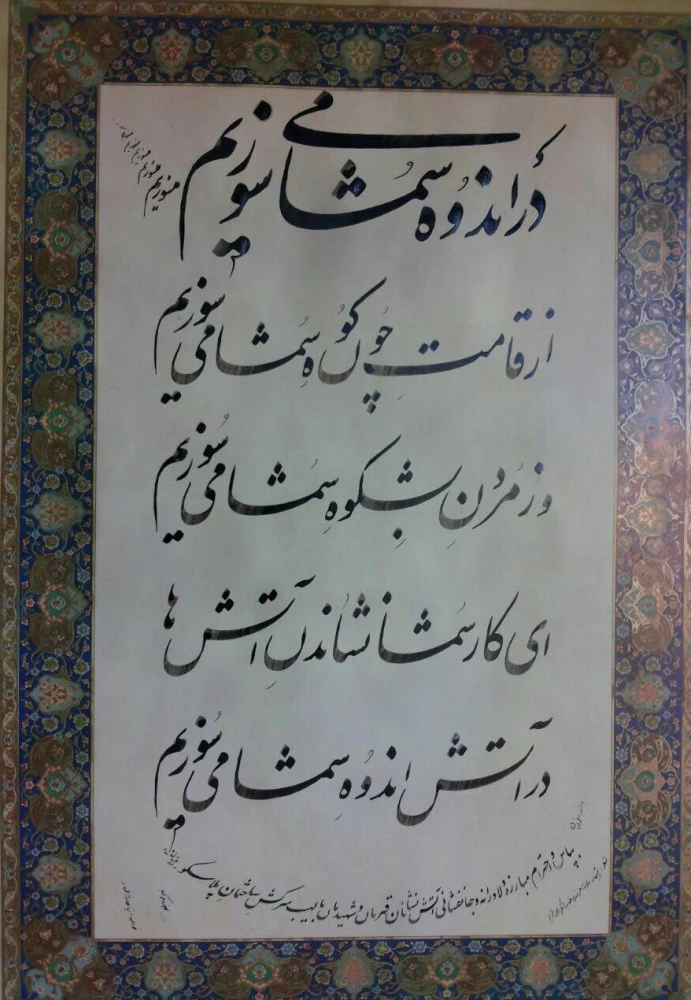 در اندوه شما می سوزیم
از قامتِ چون کوهِ شما می سوزیم
وز مردنِ بشکوهِ شما می سوزیم
ای کار شما نشاندنِ آتش ها
در آتش اندوهِ شما می سوزیم
بپاس و احترام مبارزه دلاورانه و جانفشانی آتش نشانان قهرمان و شهیدمان با لهیب سرکش ساختمان پلاسکو